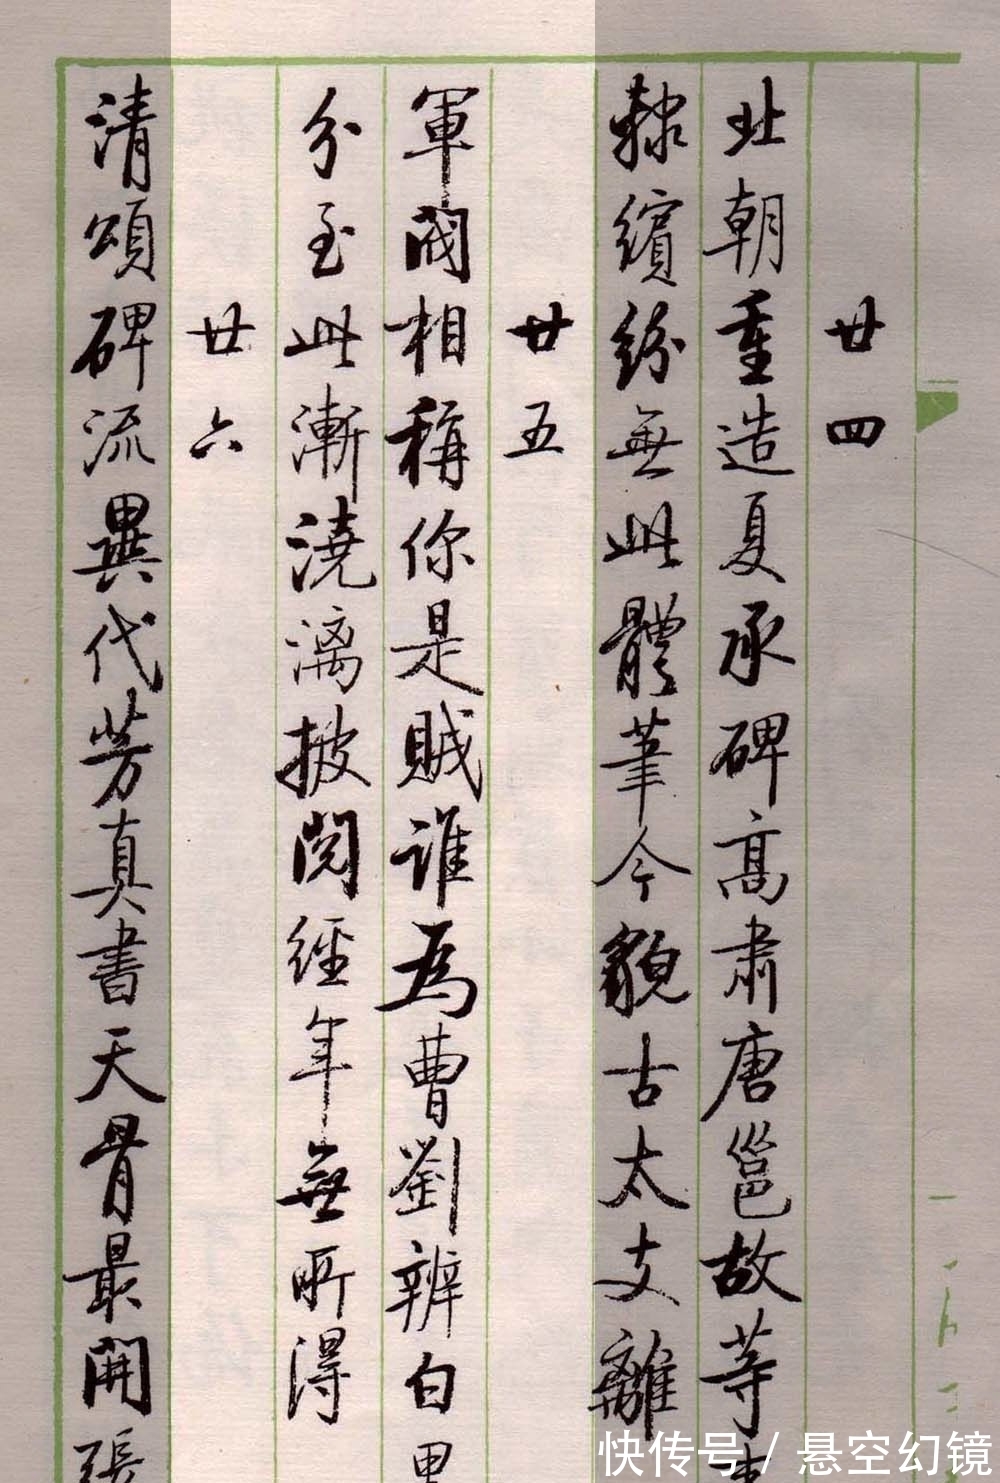 廿四
北朝重造夏承碑高肅唐邕故等
隸繽紛無此體筆今貌古太支離
廿五
軍閥相稱你是賊誰為曹劉辨白
分至此漸澆漓披閱經年無所得
廿六
清頌碑流異代芳真書天骨最開張
快传号 / 悬空幻镜